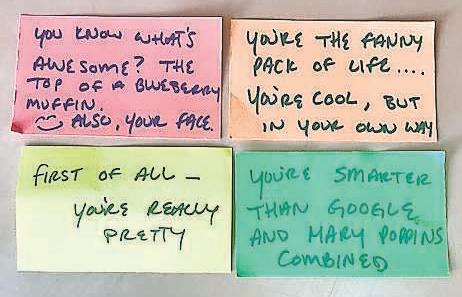 YOU KNOW WHAT'S
AWESOME? THE
TOP OF A BLUEBERRY
MUFFIN.
ALSO, YOUR FACE.
YOU'RE THE FANNY
PACK OF LIFE....
YOU'RE COOL, BUT
IN YOUR OWN WAY
FIRST OF ALL —
YOU'RE REALLY
PRETTY
YOU'RE SMARTER
THAN GOOGLE
AND MARY POPPINS
COMBINED